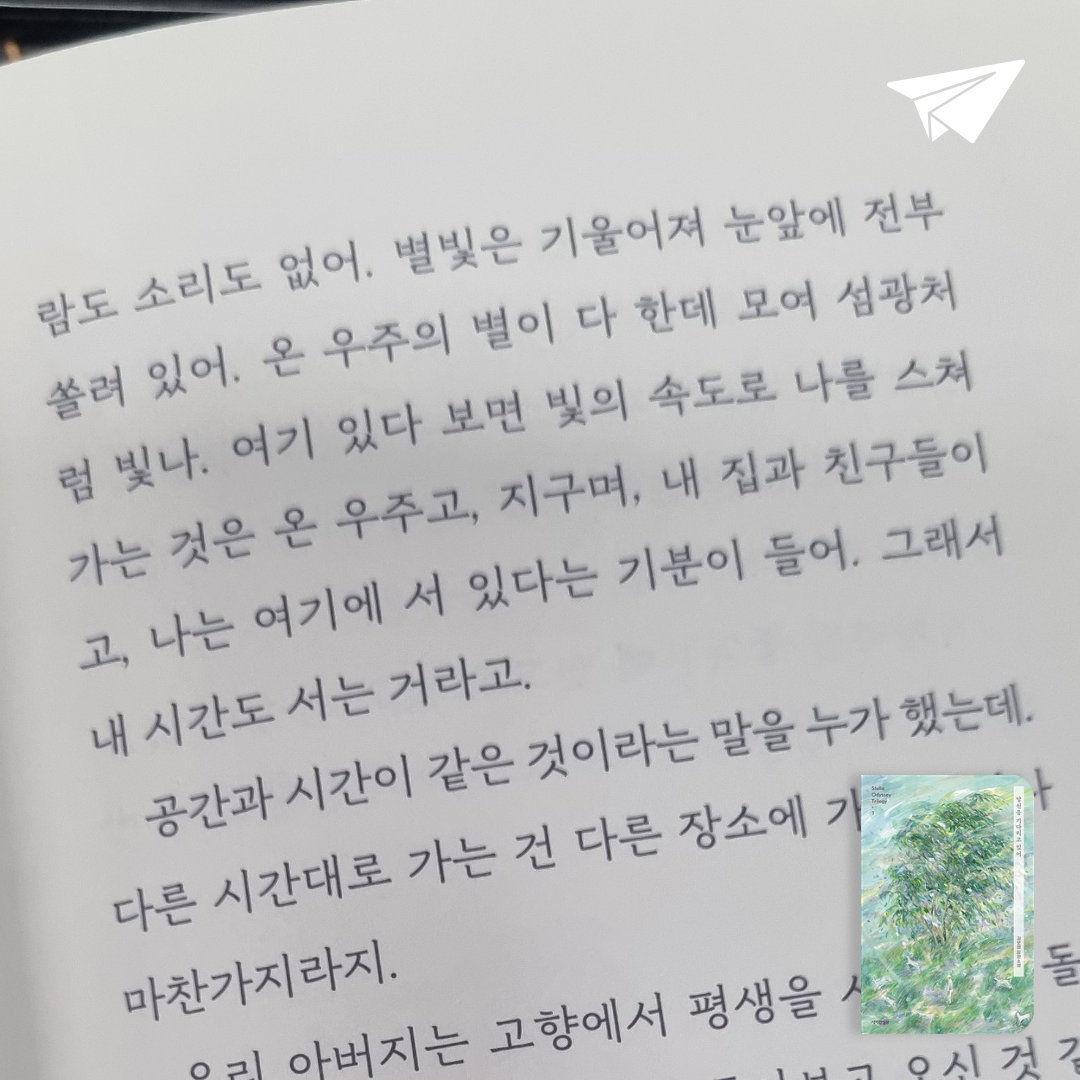 람도 소리도 없어. 별빛은 기울어져 눈앞에 전부
쏠려 있어. 온 우주의 별이 다 한데 모여 섬광처
럼 빛나. 여기 있다 보면 빛의 속도로 나를 스쳐
가는 것은 온 우주고, 지구며, 내 집과 친구들이
고, 나는 여기에 서 있다는 기분이 들어. 그래서
내 시간도 서는 거라고.
공간과 시간이 같은 것이라는 말을 누가 했는데.
다른 시간대로 가는 건 다른 장소에
마찬가지라지.
우리 아버지는 고향에서 평생을
오신 것
Stella
Odyssey
Trilogy
당신을 기다리고 있어